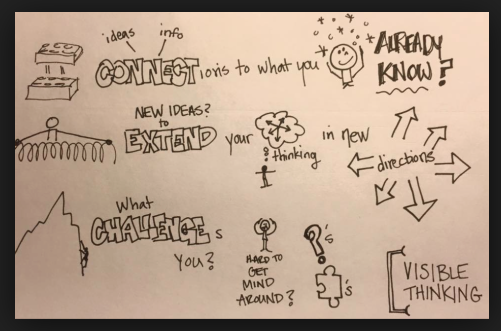 ideas info
CONNECTions to what you ALREADY KNOW?
NEW IDEAS?
to
EXTEND your thinking in new directions
What
CHALLENGES
YOU?
HARD TO
GET
MIND
AROUND?
?'s
's
VISIBLE
THINKING